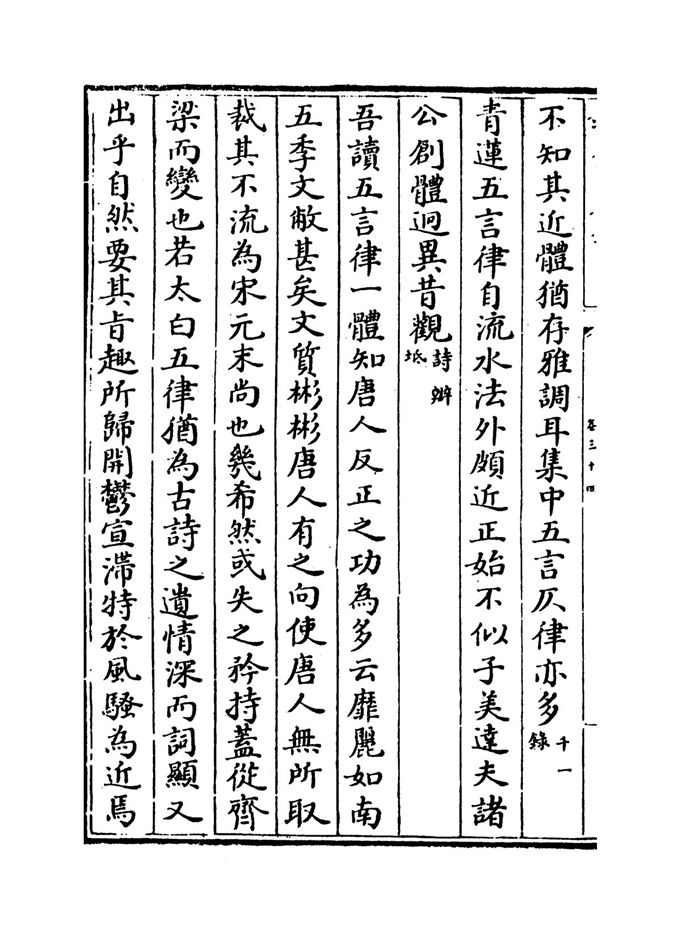 不知其近體猶存雅調耳集中五言仄律亦多千一錄
青蓮五言律自流水法外頗近正始不似子美達夫諸
公創體迥異昔觀詩辯坻
吾讀五言律一體知唐人反正之功為多云靡麗如南
五季文敝甚矣文質彬彬唐人有之向使唐人無所取
裁其不流為宋元末尚也幾希然或失之矜持蓋從齊
梁而變也若太白五律猶為古詩之遺情深而詞顯又
出乎自然要其旨趣所歸開鬱宣滯特於風騷為近焉
卷三十四